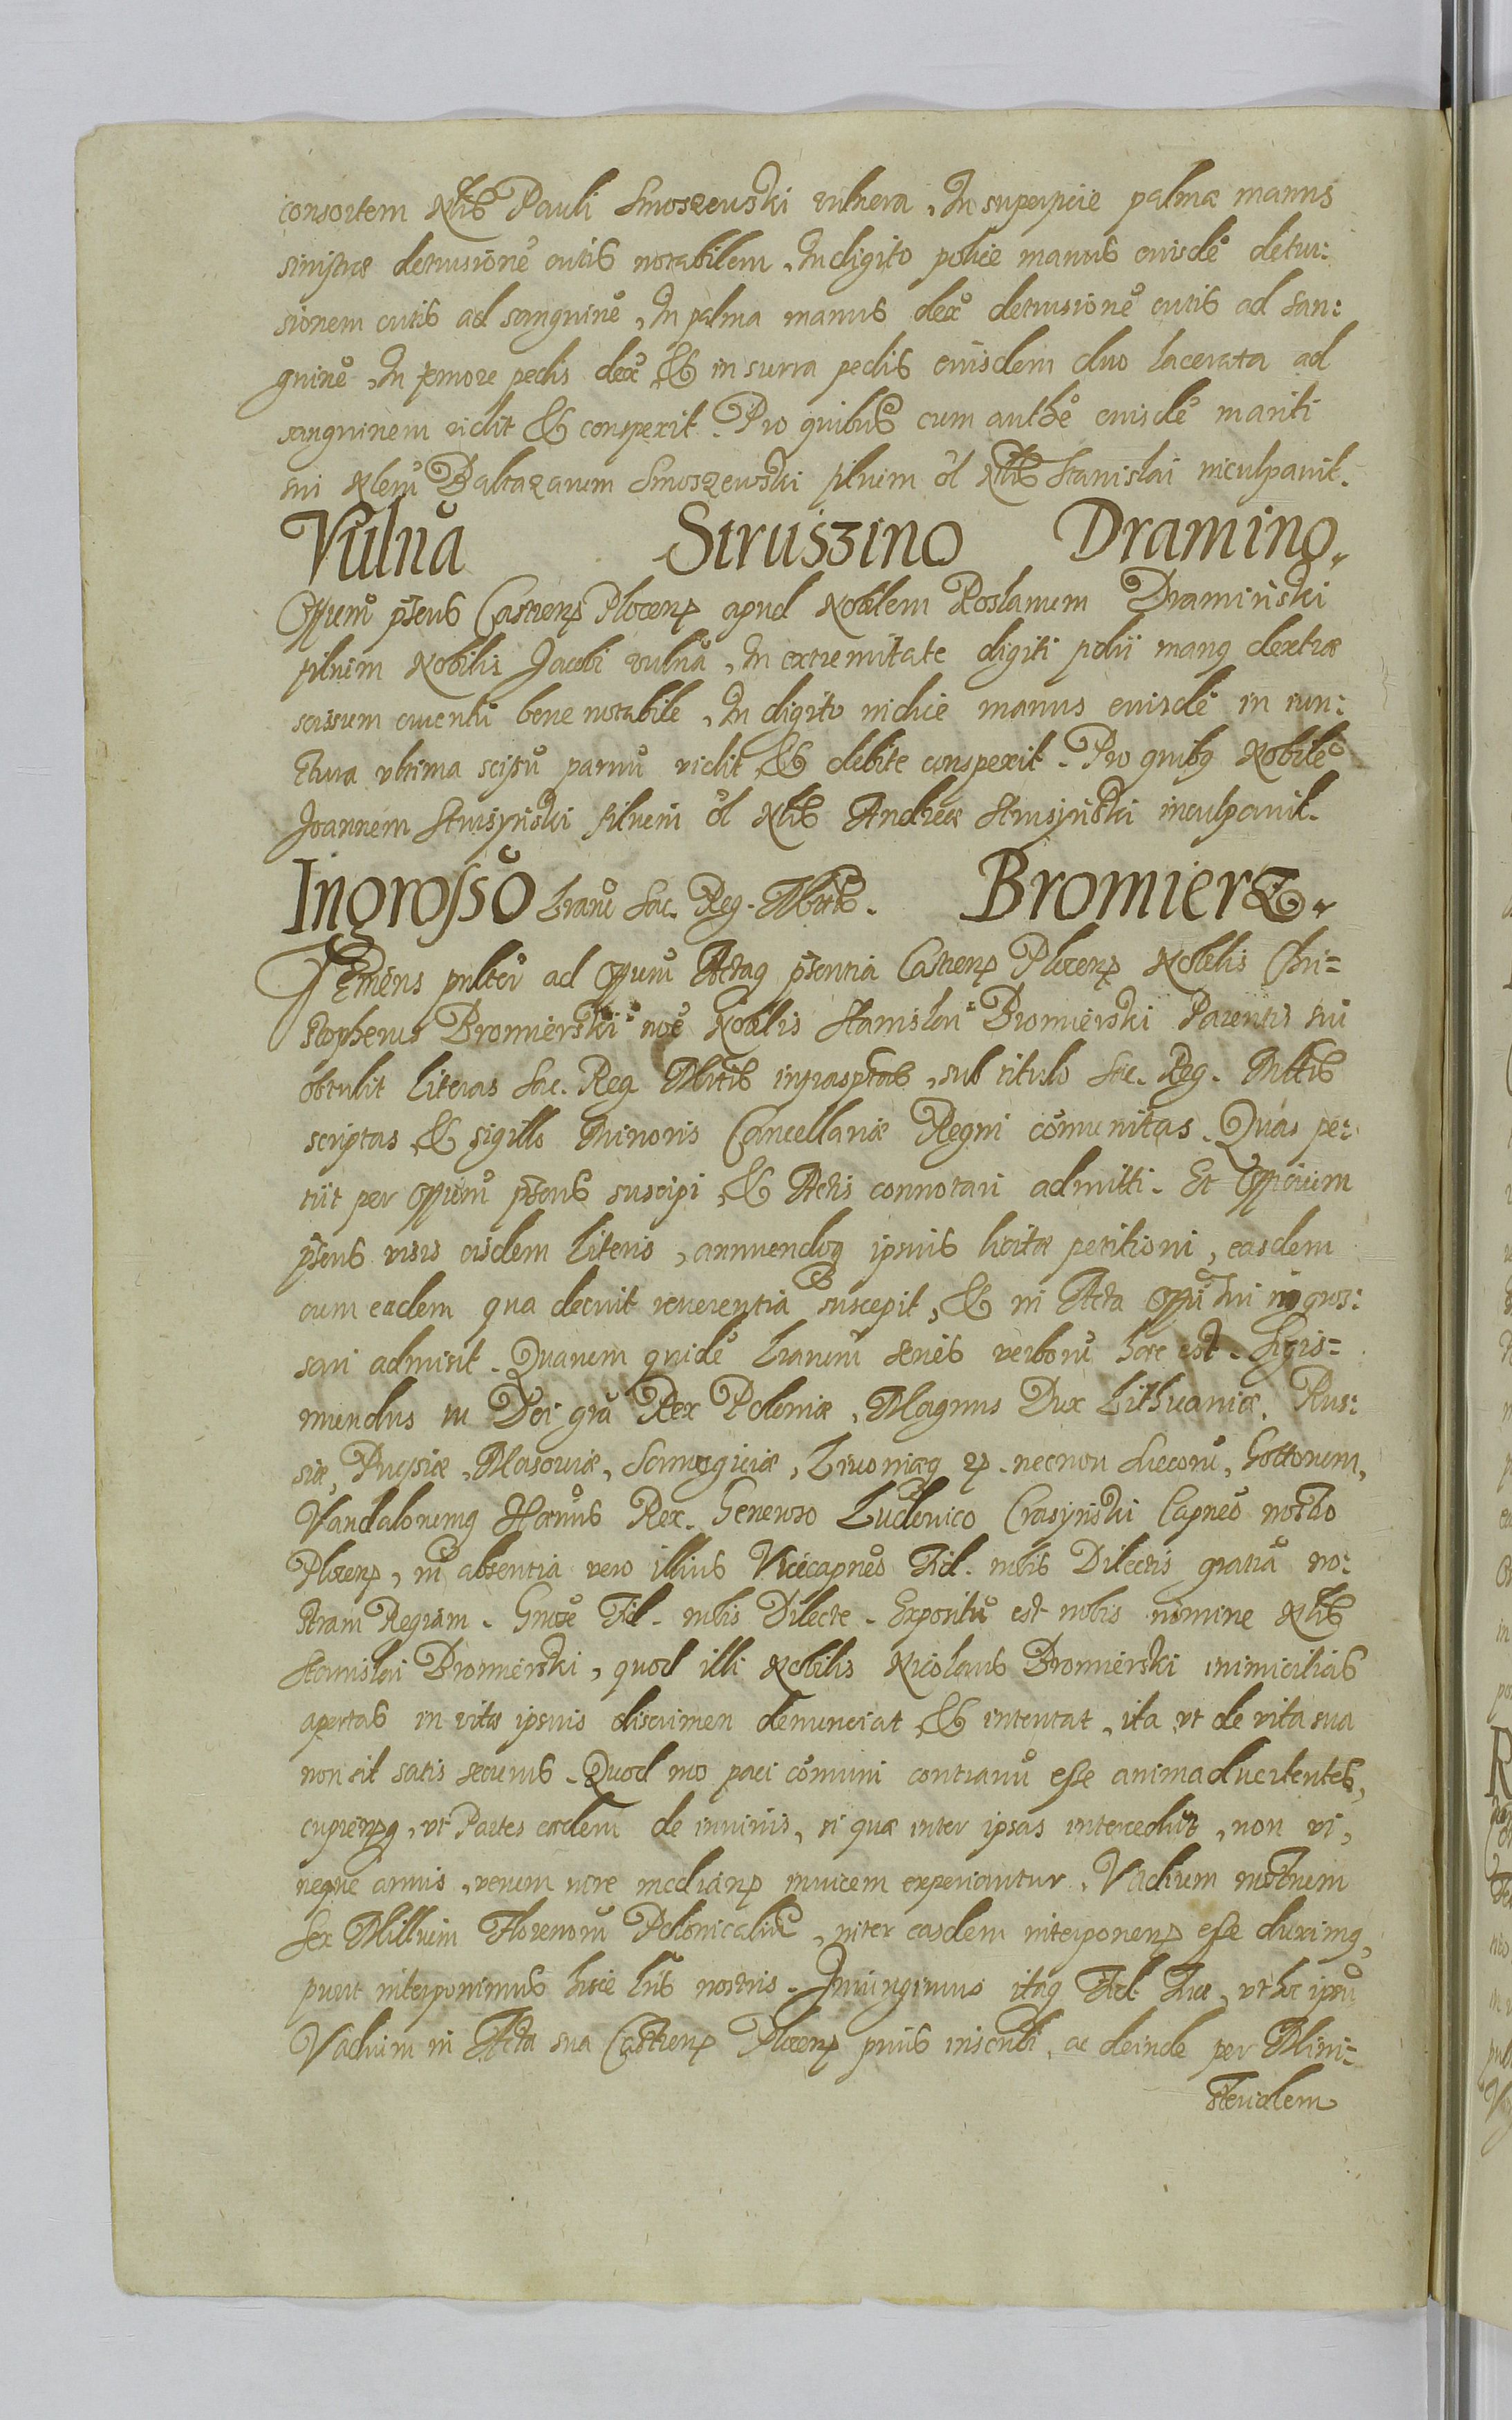 consortem Nlis Pauli Smoszewski vulnera, In superficie palmæ manus
sinistræ detrusionē cutis notabilem, In digito police manus eiusdē detru:
sionem cutis ad sanguinē, In palma manus dex detrusionē cutis ad san:
guinē, In femore pedis dex & in surra pedis eiusdem duo lacerata ad
sanguinem vidit & conspexit. Pro quibus cum authē eiusdē mariti
sui Nlem Baltazarum Smoszewski filium ol Nlis Stanislai inculpavit.
Vulnā Struszino Dramino.
Offium pn̄s Castren Plocen apud Nobilem Roslanum Dramiński
filium Nobilis Jacobi vulnā, In extremitate digiti polii manꝗ dextræ
scissum cruentū bene notabile, In digito indice manus eiusdē in iun:
ctura vltima scissū parvū vidit & debite conspexit. Pro quibꝗ Nobilē
Joannem Strusyński filium ol Nlis Andreæ Strusyński inculpavit.
Ingrossō Lrarū Sac. Reg. Mttis. Bromierz.
Veniens pnlter ad Offium Actaꝗ pn̄tia Castren Plocen Nobilis Chri=
stopherus Bromierski noē Nobilis Stanislai Bromierski Parentis sui
obtulit Literas Sac. Reg. Mttis infrascptas, sub titulo Sac. Reg. Mttis
scriptas & sigillo Minoris Cancellariæ Regni comunitas. Quas pe:
tiit per Offium pn̄s suscipi, & Actis connotari admitti. Et Officium
pn̄s visis eisdem Literis, annuendoꝗ ipsius licitæ petitioni, easdem
cum eadem qua decuit reverentia suscepit, & in Acta Offii sui ingros:
sari admisit. Quarum quidē Lrarum tenēs verborū hæc est. Sigis=
mundus III Dei grā Rex Poloniæ, Magnus Dux Lithuaniæ, Rus:
siæ, Prussiæ, Masoviæ, Samogiciæ, Livoniæꝗ &. necnon Suecorū, Gottorum,
Vandalorumꝗ Hærus Rex. Generoso Ludovico Crasyński Capneo nostro
Plocen, in absentia vero illius Vicecapneo Fid. nobis Dilectis gratiā no:
stram Regiam. Gnose Fid. nobis Dilecte. Expositū est nobis nomine Nlis
Stanislai Bromierski, quod illi Nobilis Nicolaus Bromierski inimicitias
apertas in vitæ ipsius discrimen denunciat & intentat, ita vt de vita sua
non sit satis securus. Quod nos paci comuni contrariū esse animadvertentes,
cupienꝗ, vt Partes eædem de iniuriis, si quæ inter ipsas intercedūt, non vi,
neque armis, verum iure median invicem experiantur. Vadium nostrum
Sex Millium Florenorū Polonicaliū, inter easdem interponen esse duximꝗ,
prout interponimus hisce lris nostris. Iniungimus itaꝗ Fid. Tuæ, vt hoc ipsū
Vadium in Acta sua Castren Plocen prius inscribi, ac deinde per Mini=
sterialem